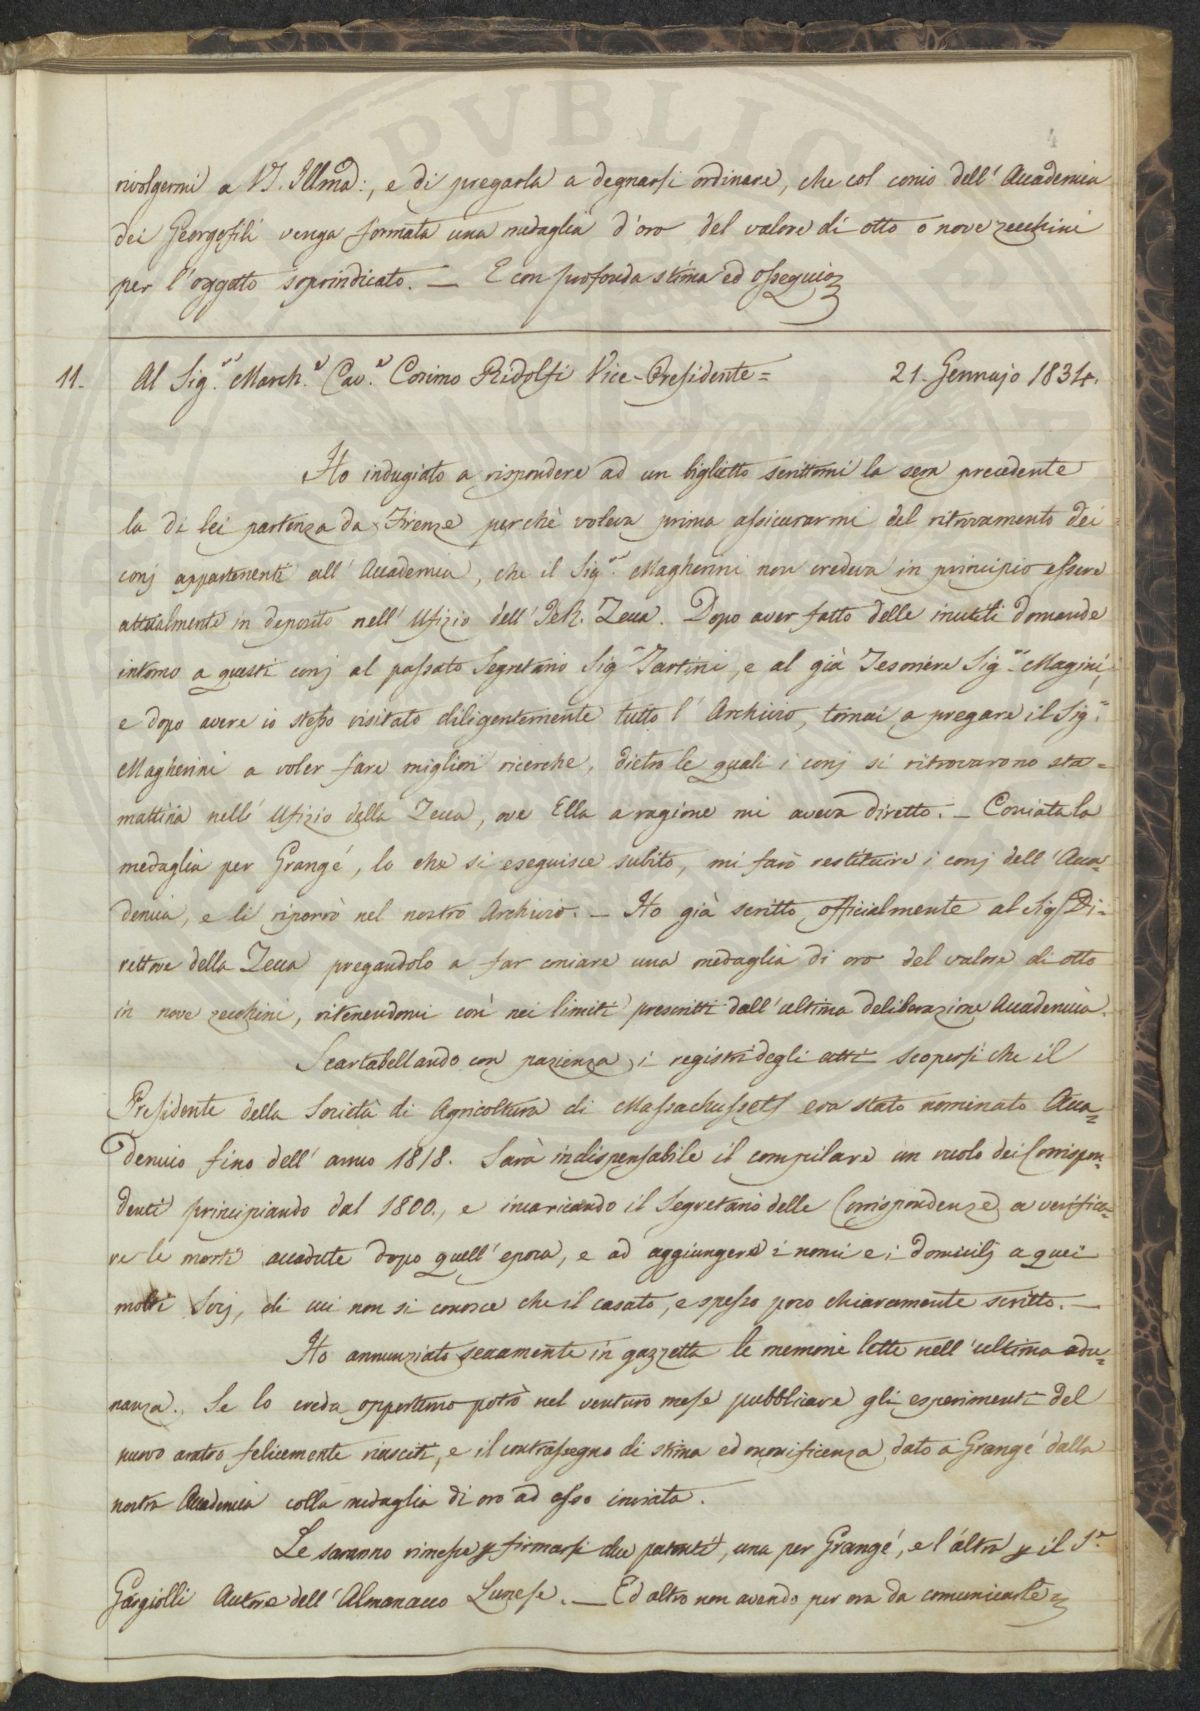 PVBLIC
4
rivolgermi a VS. Illma:, e di pregarla a degnarsi ordinare, che col conio dell'Accademia
dei Georgofili venga formata una medaglia d'oro del valore di otto o nove zecchini
per l'oggetto soprindicato. — E con profonda stima ed ossequio
11. Al Sig.r March.e Cav.e Cosimo Ridolfi Vice-Presidente= 21. Gennajo 1834.
Ho indugiato a rispondere ad un biglietto scrittomi la sera precedente
la di lei partenza da Firenze perchè voleva prima assicurarmi del ritrovamento dei
conj appartenenti all'Accademia, che il Sig.r Magherini non credeva in principio essere
attualmente in deposito nell'Ufizio dell'I e R. Zecca. Dopo aver fatto delle inutili domande
intorno a questi conj al passato Segretario Sig.r Tartini, e al già Tesoriere Sig.r Magini,
e dopo avere io stesso visitato diligentemente tutto l'Archivio, tornai a pregare il Sig.r
Magherini a voler fare migliori ricerche, dietro le quali i conj si ritrovarono sta=
mattina nell'Ufizio della Zecca, ove Ella a ragione mi aveva diretto. — Coniata la
medaglia per Grangé, lo che si eseguisce subito, mi farò restituire i conj dell'Acca=
demia, e li riporrò nel nostro Archivio. — Ho già scritto officialmente al Sig.r Di=
rettore della Zecca pregandolo a far coniare una medaglia di oro del valore di otto
in nove zecchini, ritenendomi così nei limiti prescritti dall'ultima deliberazione Accademica.
Scartabellando con pazienza i registri degli atti scopersi che il
Presidente della Società di Agricoltura di Massachussets era stato nominato Acca=
demico fino dell'anno 1818. Sarà indispensabile il compilare un ruolo dei Corrispon=
denti principiando dal 1800., e incaricando il Segretario delle Corrispondenze a verifica=
re le morti accadute dopo quell'epoca, e ad aggiungere i nomi e i domicilj a quei
molti Socj, di cui non si conosce che il casato, e spesso poco chiaramente scritto. —
Ho annunziato seccamente in gazzetta le memorie lette nell'ultima adu=
nanza. Se lo creda opportuno potrò nel venturo mese pubblicare gli esperimenti del
nuovo aratro felicemente riusciti, e il contrassegno di stima ed onorificenza dato a Grangé dalla
nostra Accademia colla medaglia di oro ad esso inviata.
Le saranno rimesse p firmarsi due patenti, una per Grangé, e l'altra p il S.r
Gargiolli Autore dell'Almanacco Lunese. — Ed altro non avendo per ora da comunicarle